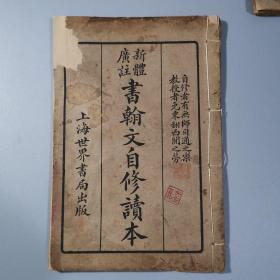 自修者有無師自通之樂
教授者免東翻西閱之勞
新體
廣註
書翰文自修讀本
上海世界書局出版